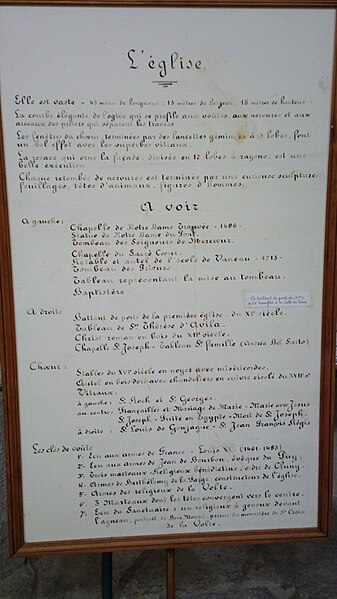 L'église
Elle est vaste - 40 mètres de longueur, 13 mètres de largeur, 18 mètres de hauteur.
La courbe élégante de l'ogive qui se profile aux voûtes, aux nervures et aux
arceaux des piliers qui séparent les travées
Les fenêtres du chœur, terminées par des lancettes géminées à 3 lobes, font
un bel effet avec les superbes vitraux.
La rosace qui orne la façade, divisée en 12 lobes à rayons, est une
belle exécution
Chaque retombée de nervures est terminée par une curieuse sculpture
feuillages, têtes d'animaux, figures d'hommes.
A voir
A gauche:
Chapelle de Notre Dame Trouvée - 1496.
Statue de Notre Dame du Pont.
Tombeau des Seigneurs de Mercœur.
Chapelle du Sacré Cœur.
Retable et autel de l'école de Vaneau - 1713.
Tombeau des Prieurs.
Tableau représentant la mise au tombeau.
Baptistère
Le battant de porte du XIe S.
à la Salle du
A droite:
Battant de porte de la première église, du XIe siècle.
Tableau de Ste Thérèse d'Avila.
Christ roman en bois du XIIe siècle.
Chapelle St Joseph - Tableau Ste Famille (Andréa Del Sarto)
Chœur:
Stalles du XVe siècle en noyer avec miséricordes.
Autel en bois doré avec chandeliers en cuivre ciselé du XVIIe S.
Vitraux:
à gauche: St Roch et St Georges.
au centre: Fiançailles et Mariage de Marie - Marie avec Jésus
St Joseph - Fuite en Egypte - Mort de St Joseph.
à droite: St Louis de Gonzague - St Jean François Régis
Les clés de voûte
1° Ecu aux armes de France - Louis XI (1461-1483).
2° Ecu aux armes de Jean de Bourbon, évêque du Puy.
3° Trois marteaux - Religieux Bénédictins, ordre de Cluny.
4° Armes de Barthélémy de la Farge, constructeur de l'église.
5° Armes des religieux de la Volte.
6° 3 Marteaux dont les têtes convergent vers le centre.
7° Ecu du Sanctuaire: un religieux à genoux devant
l'agneau, portrait de Dom prieur du monastère de Ste Croix
de la Volte.